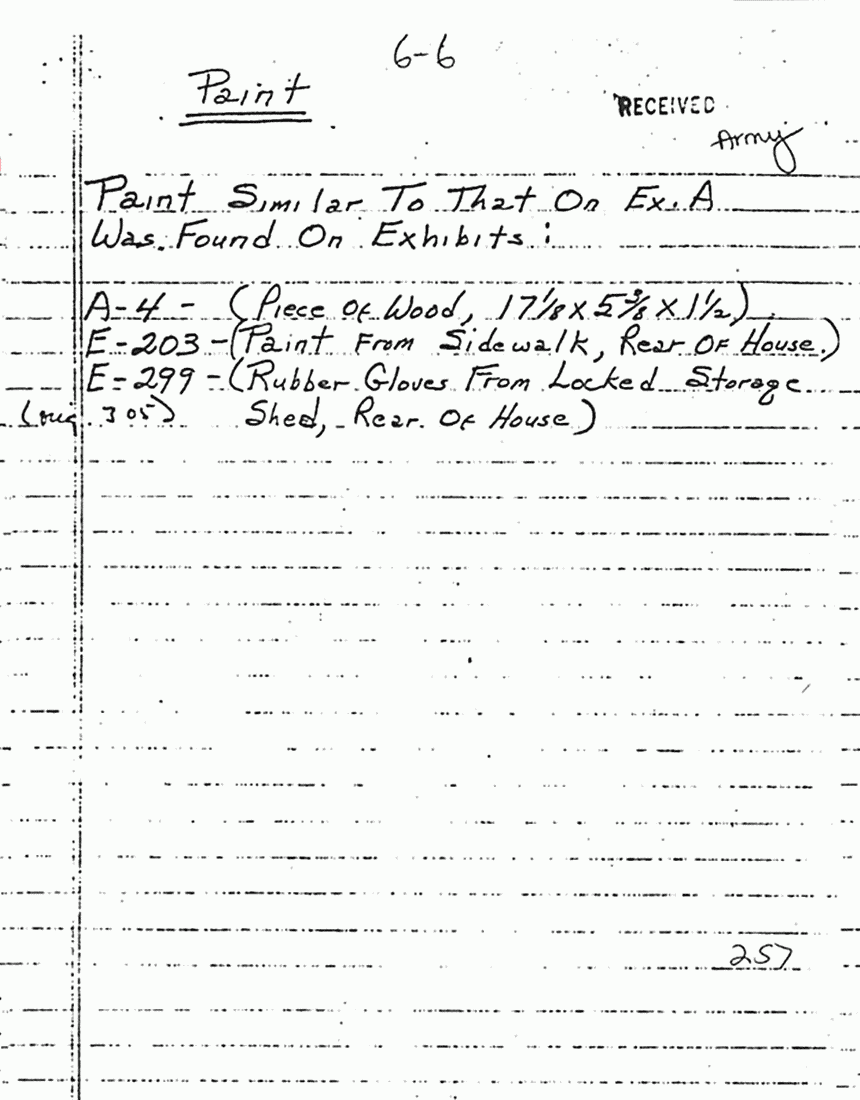 6-6
Paint
RECEIVED
Army
Paint Similar To That On Ex. A
Was Found On Exhibits :
A-4 - (Piece Of Wood, 17 1/8 x 5 3/8 x 1 1/2)
E-203 - (Paint From Sidewalk, Rear Of House.)
E-299 - (Rubber Gloves From Locked Storage
(orig. 305) Shed, Rear Of House)
257